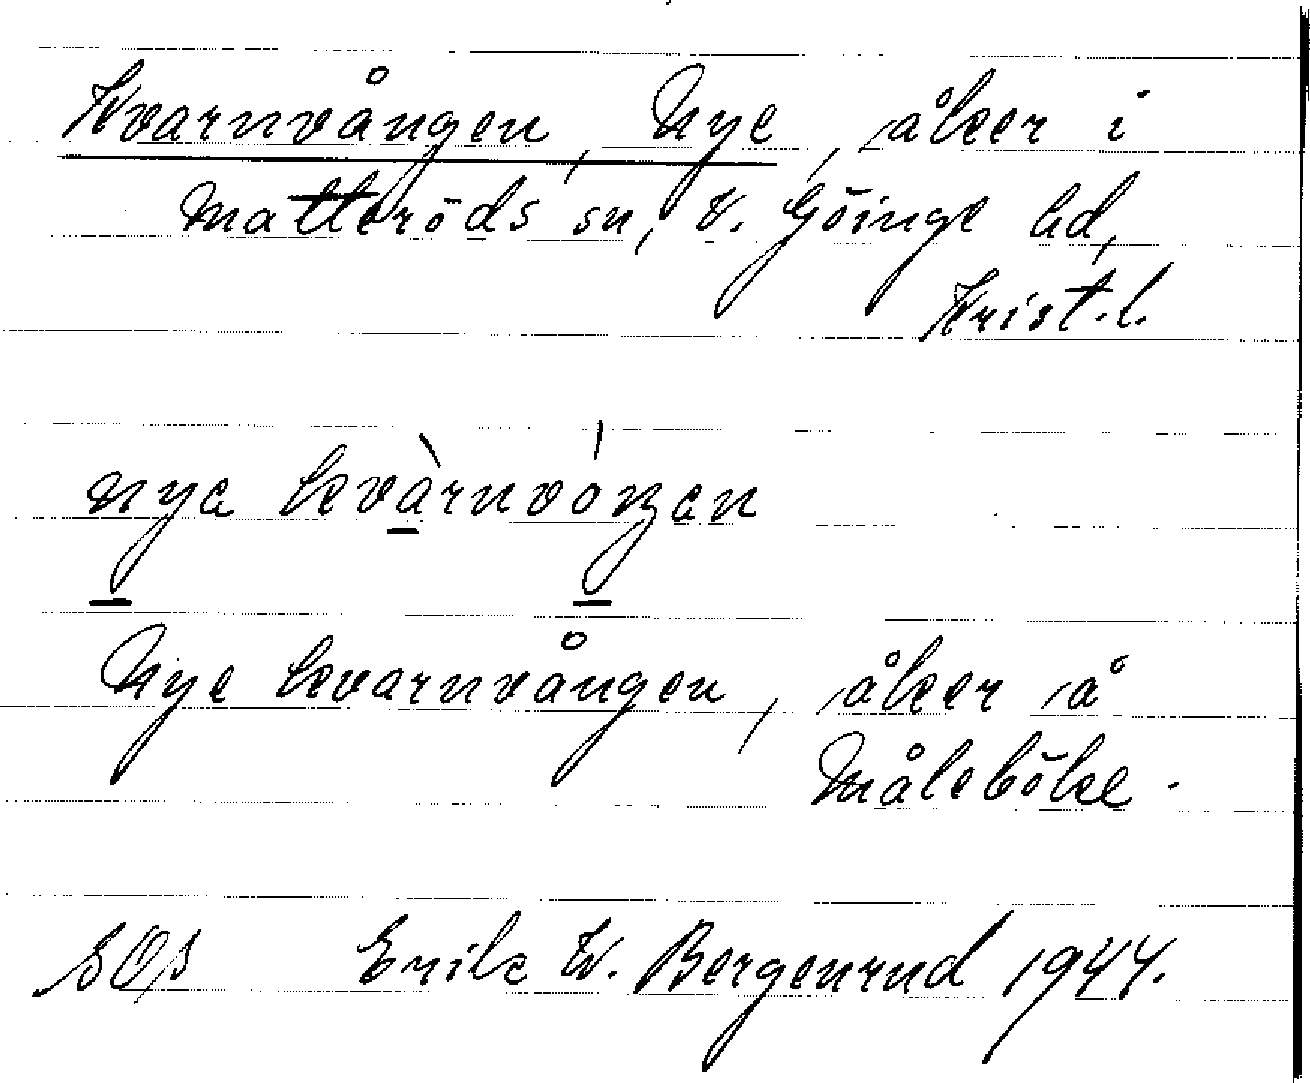 Kvarnvången, Nye, åker i
Matteröds sn, V. Göinge hd,
Krist. l.
nya kvàrnvóŋan
Nye kvarnvången, åker å
Måleböke.
SOS Erik W. Bergenrud 1944.